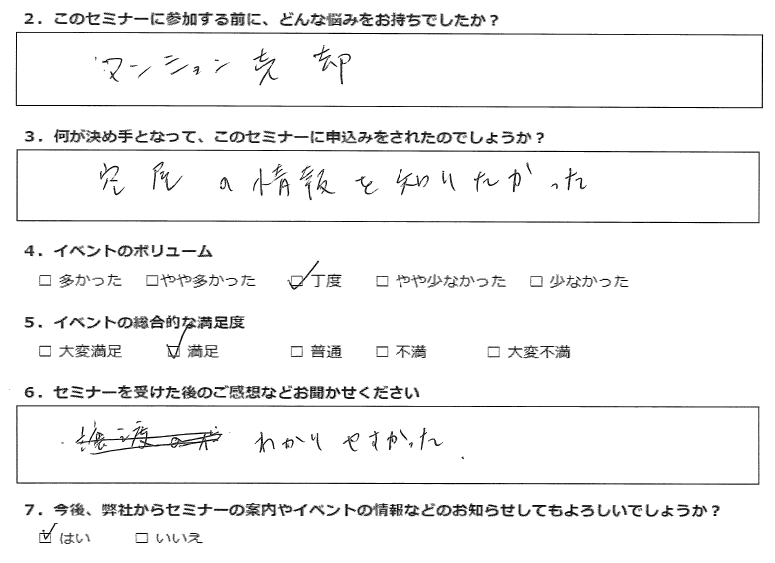 2．このセミナーに参加する前に、どんな悩みをお持ちでしたか？
マンション売却
3．何が決め手となって、このセミナーに申込みをされたのでしょうか？
空屋の情報を知りたかった
4．イベントのボリューム
□ 多かった □やや多かった ☑ 丁度 □ やや少なかった □ 少なかった
5．イベントの総合的な満足度
□ 大変満足 ☑ 満足 □ 普通 □ 不満 □ 大変不満
6．セミナーを受けた後のご感想などお聞かせください
わかりやすかった.
7．今後、弊社からセミナーの案内やイベントの情報などのお知らせしてもよろしいでしょうか？
☑ はい □ いいえ